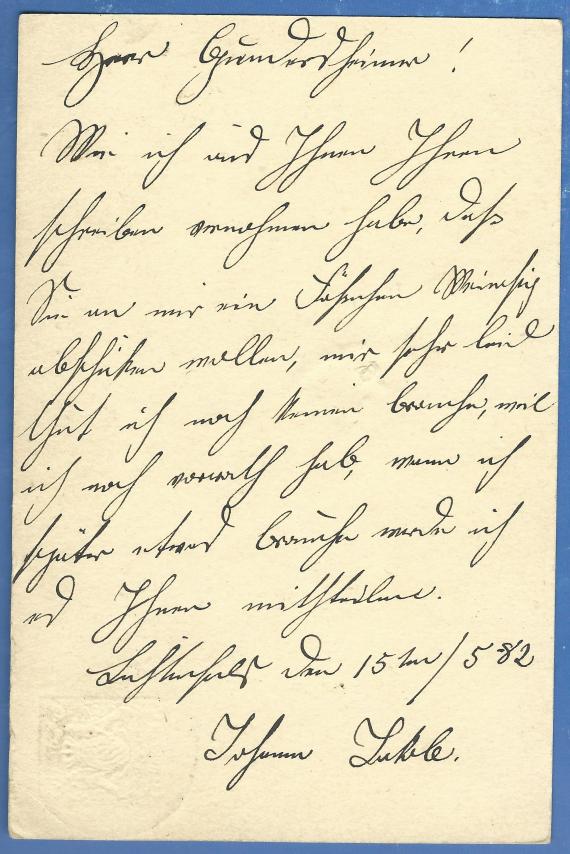 Herr Gundersheimer!
Wie ich aus Ihnen Ihren
schreiben vernohmen habe, daß
Sie an mir ein Fäschen Weinesig
abschiken wollen, mir sehr leid
thut ich noch keinen brauche, weil
ich noch vorrath hab, wenn ich
später etwas brauche werde ich
es Ihnen mittheilen.
den 15ten/5 82
Johann